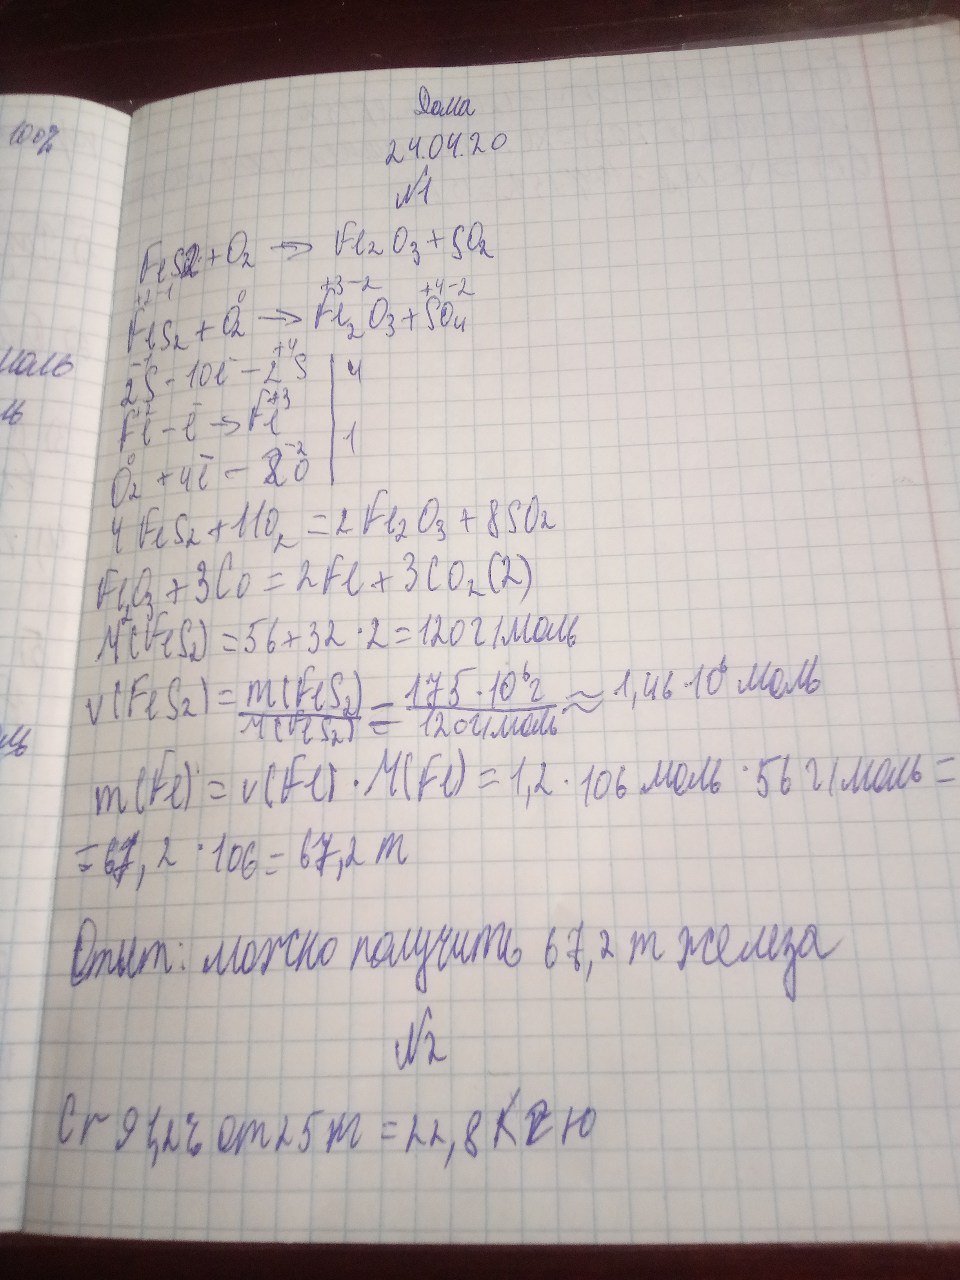 100%
моль
Дома
24.04.20
№1
FeS2 + O2 → Fe2O3 + SO2
+2 -1 0 +3 -2 +4 -2
FeS2 + O2 → Fe2O3 + SO4
2S⁻¹ - 10ē - 2S⁺⁴ | 4
Fe⁺² - ē → Fe⁺³
O2⁰ + 4ē - 2O⁻² | 1
4FeS2 + 11O2 = 2Fe2O3 + 8SO2
Fe2O3 + 3Co = 2Fe + 3CO2 (2)
M(FeS2) = 56 + 32 · 2 = 120 г/моль
ν(FeS2) = m(FeS2)/M(FeS2) = 175 · 10⁶ г/120 г/моль ≈ 1,46 · 10⁶ моль
m(Fe) = ν(Fe) · M(Fe) = 1,2 · 106 моль · 56 г/моль =
= 67,2 · 106 = 67,2 т
Ответ: можно получить 67,2 т железа
№2